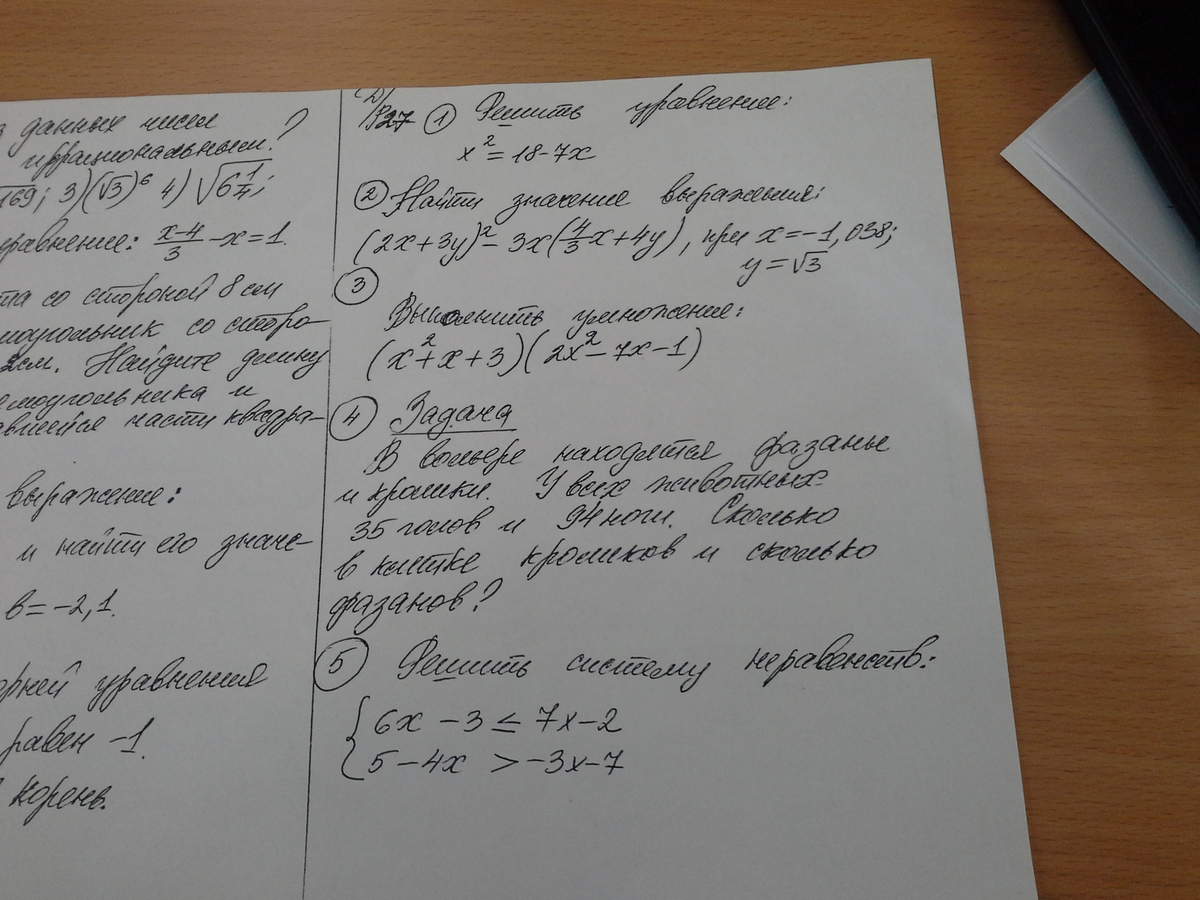 данных чисел
иррациональным?
√169; 3)(√3)⁶ 4) √6 1/4;
уравнение: (x-4)/3 - x = 1.
со стороной 8 см
со сторо-
2см. Найдите длину
и
части квадра-
выражение:
и найти его значе-
в = -2,1.
уравнения
равен -1.
корень.
27 ① Решить уравнение:
x² = 18-7x
② Найти значение выражения:
(2x+3y)² - 3x(4/3x+4y), при x = -1,038;
y = √3
③
Выполнить умножение:
(x²+x+3)(2x²-7x-1)
④ Задача
В вольере находятся фазаны
и кролики. У всех животных
35 голов и 94 ноги. Сколько
в клетке кроликов и сколько
фазанов?
⑤ Решить систему неравенств:
{ 6x - 3 ≤ 7x - 2
5 - 4x > -3x - 7